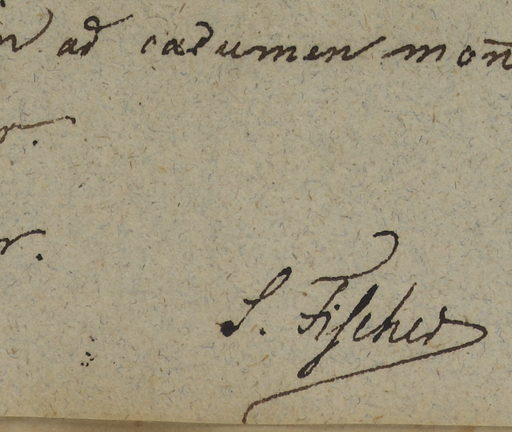 ad cacumen mon̄
S. Fischer